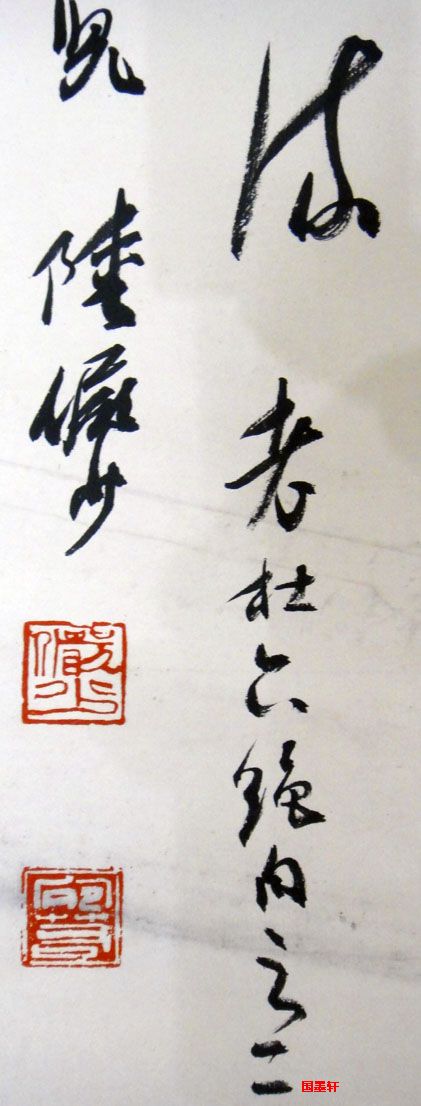 流 老杜六絶句之二
陸儼少
儼少
宛若
国墨轩